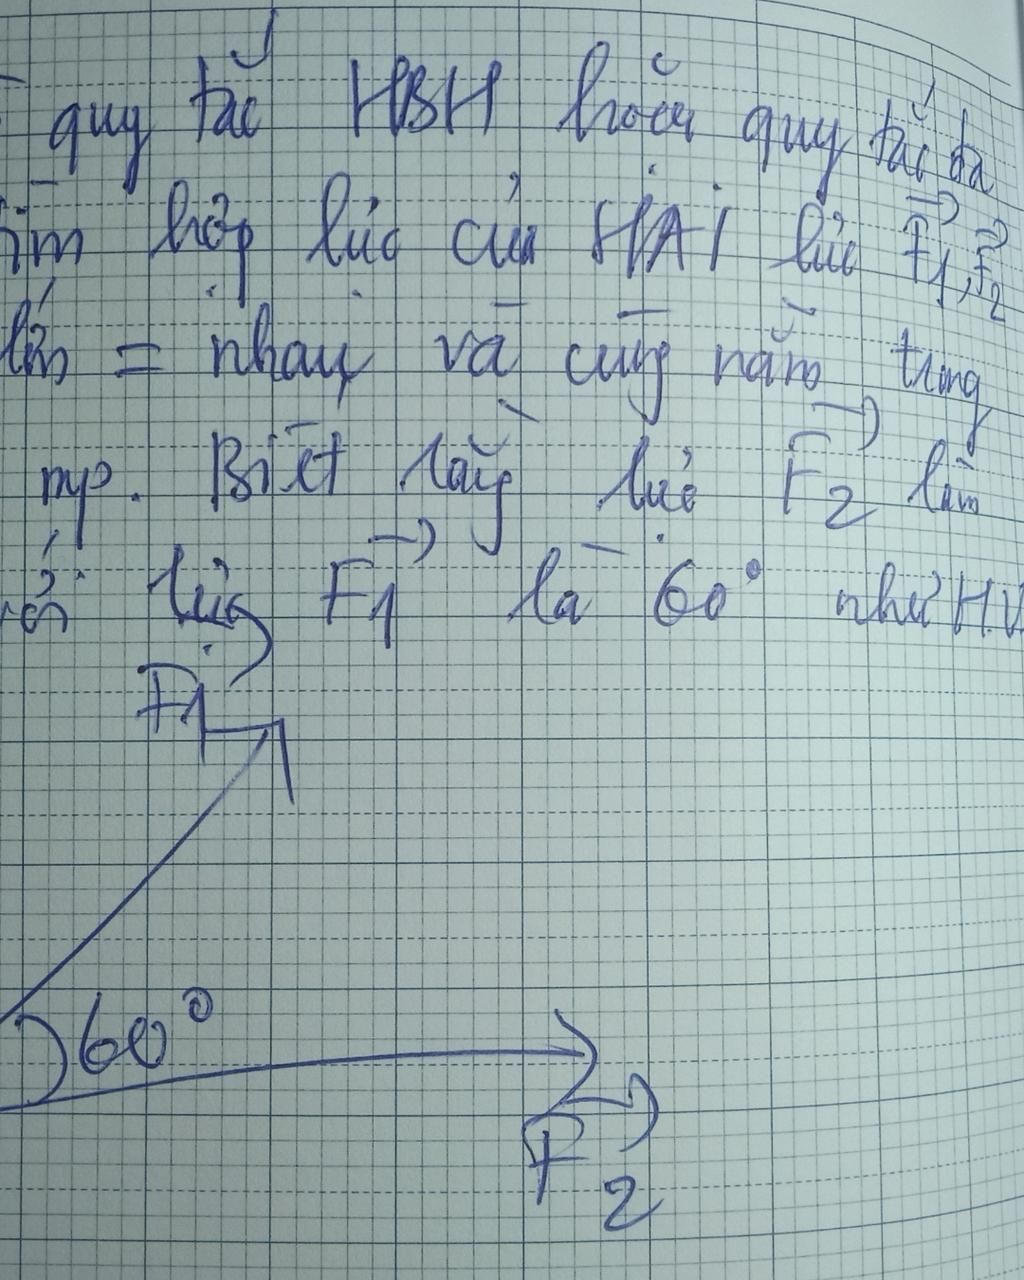 quy tắc HBH hoặc quy tắc đa
tìm hợp lực của HAI lực F₁, F₂
lớn = nhau và cùng nằm trong
mp. Biết rằng lực F₂ làm
với lực F₁ là 60° như H.V
F₁
60°
F₂